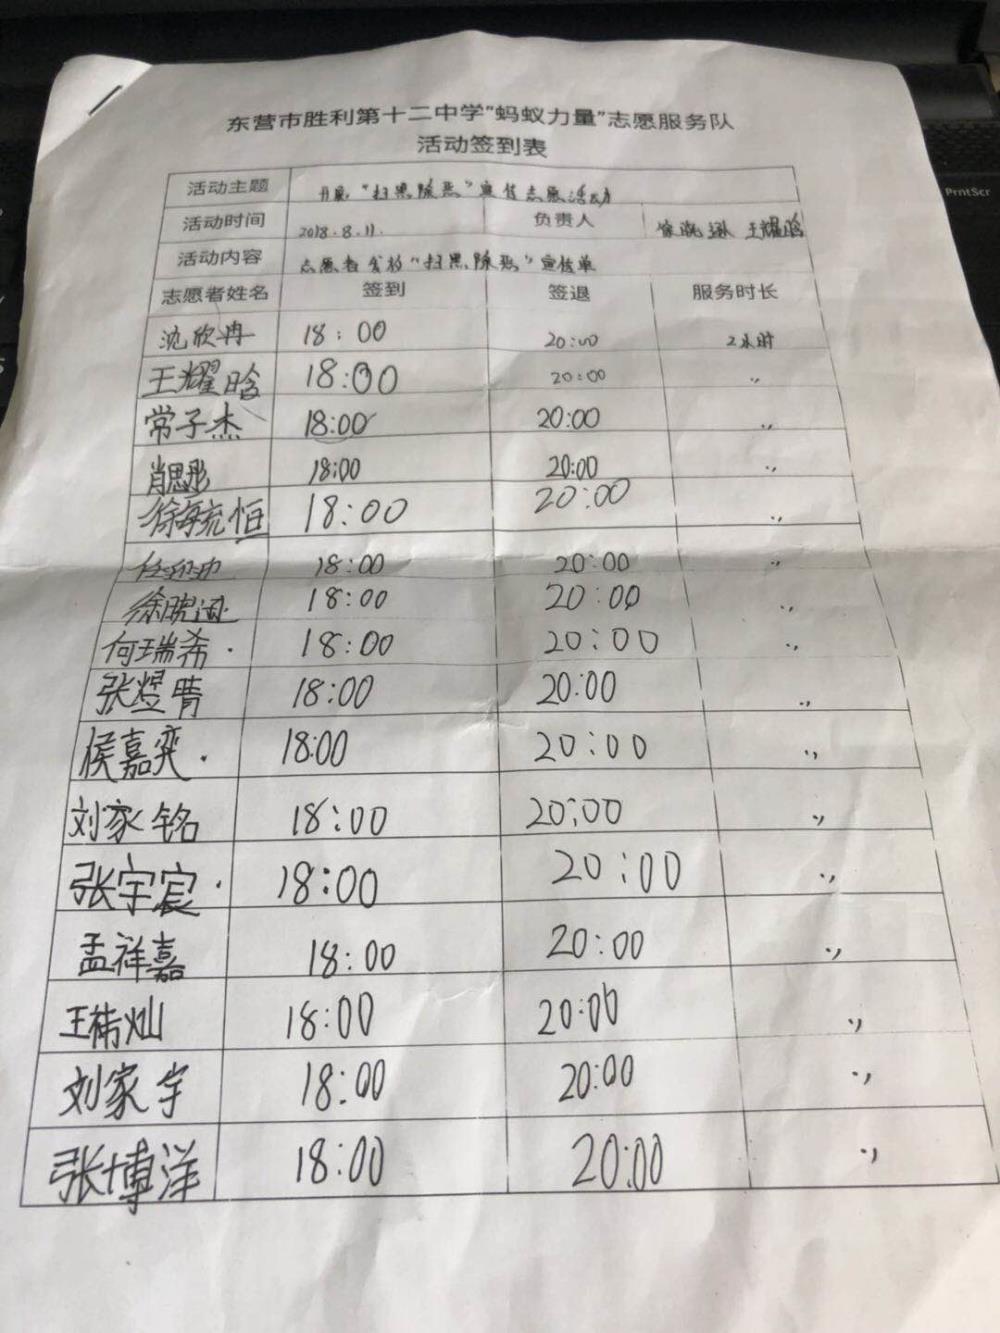 东营市胜利第十二中学"蚂蚁力量"志愿服务队
活动签到表
活动主题 开展"扫黑除恶"宣传志愿活动
活动时间 2018.8.11. 负责人 徐晓 王耀晗
活动内容 志愿者发放"扫黑除恶"宣传单
志愿者姓名 签到 签退 服务时长
沈欣冉 18:00 20:00 2小时
王耀晗 18:00 20:00 〃
常子杰 18:00 20:00 〃
肖思彤 18:00 20:00 〃
徐毓恒 18:00 20:00 〃
18:00 20:00 〃
徐晓 18:00 20:00 〃
何瑞希. 18:00 20:00 〃
张煜晴 18:00 20:00 〃
侯嘉奕. 18:00 20:00 〃
刘家铭 18:00 20:00 〃
张宇宸. 18:00 20:00 〃
孟祥嘉 18:00 20:00 〃
王祎灿 18:00 20:00 〃
刘家宇 18:00 20:00 〃
张博洋 18:00 20:00 〃
PrntScr